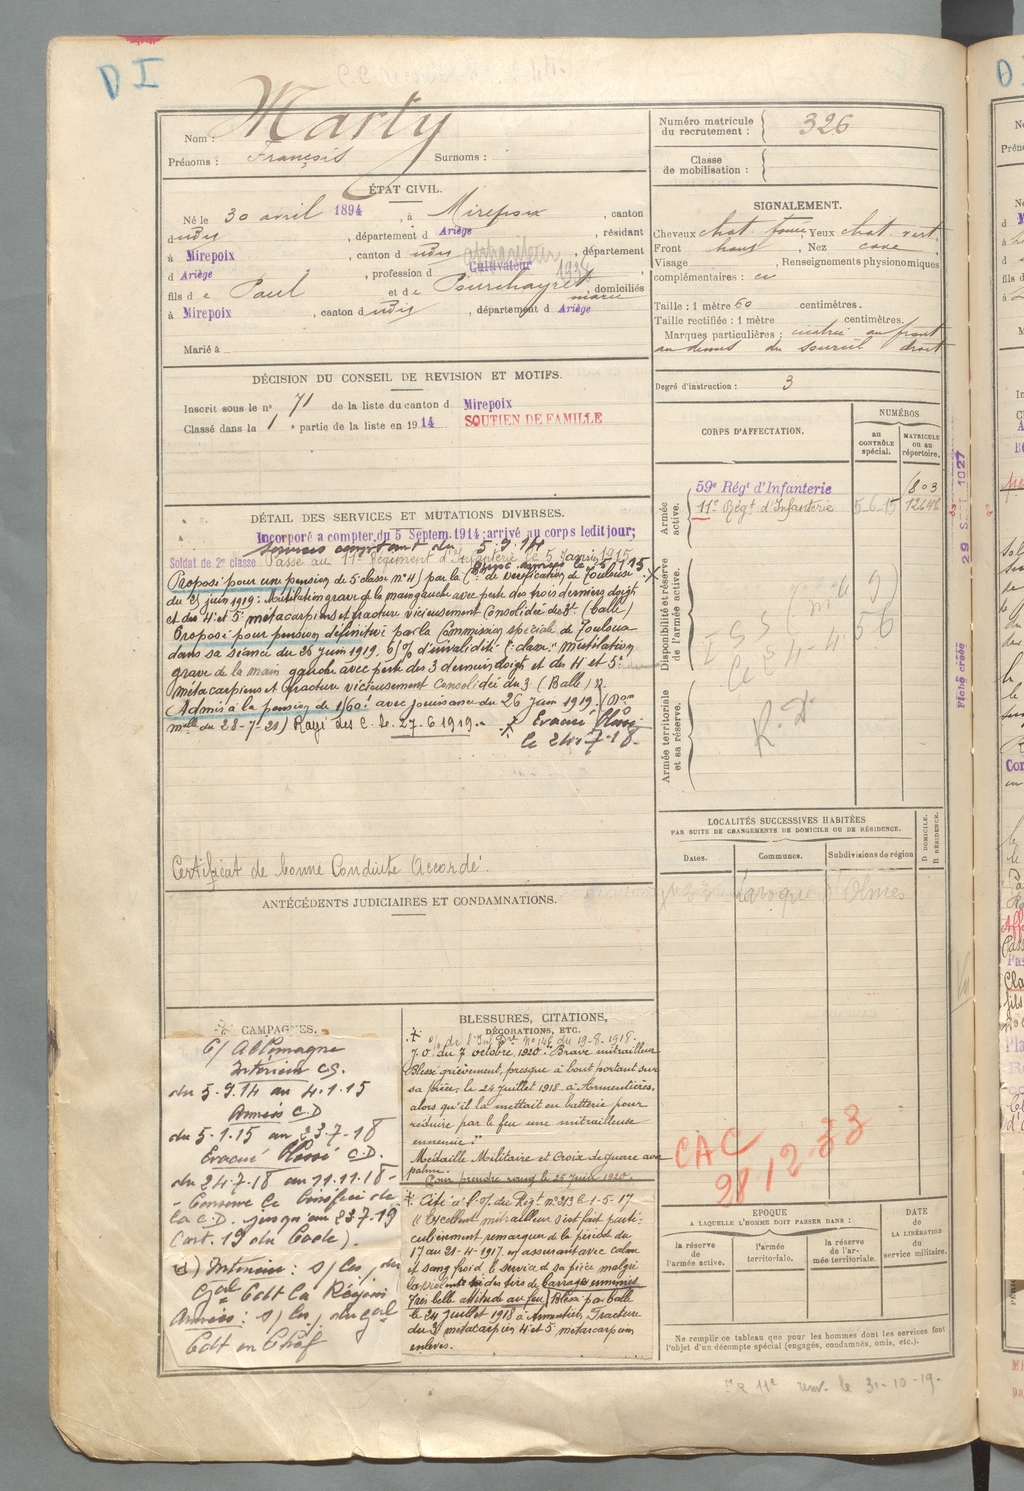 D I
Nom : Marty
Prénoms : François Surnoms :
ÉTAT CIVIL.
Né le 30 avril 1894, à Mirepoix, canton
dudit, département d Ariège, résidant
à Mirepoix, canton d dudit, département
d Ariège, profession d Cultivateur 1938
fils d e Paul et de Pourchayret marie, domiciliés
à Mirepoix, canton dudit, département d Ariège
Marié à
DÉCISION DU CONSEIL DE REVISION ET MOTIFS.
Inscrit sous le n° 71 de la liste du canton d Mirepoix
Classé dans la 1 e partie de la liste en 1914 SOUTIEN DE FAMILLE
DÉTAIL DES SERVICES ET MUTATIONS DIVERSES.
Incorporé a compter du 5 Septem. 1914 : arrivé au corps ledit jour;
services comptant du 5.9.14
Soldat de 2e classe Passé au 11e Régiment d'Infanterie le 5 Janvier 1915
Proposé pour une pension de 5 classe n° 4) par la Con de vérification de Toulouse
du 2 juin 1919 : Mutilation grave de la main gauche avec perte des trois derniers doigts
et des 4 et 5 métacarpiens et fracture vicieusement consolidée des 3e (balle)
Proposé pour pension définitive par la Commission spéciale de Toulouse
dans sa séance du 26 juin 1919. 61% d'invalidité 1e classe. "Mutilation
grave de la main gauche avec perte des 3 derniers doigts et des 4 et 5e
métacarpiens et fracture vicieusement consolidée du 3 (Balle)
Admis à la pension de 1/60e avec jouissance du 26 Juin 1919. (Don
melle du 28-7-21) Rayé des C. le 27.6.1919.. Evacué Blessé
le 24-7-18-
Certificat de bonne Conduite Accordé.
ANTÉCÉDENTS JUDICIAIRES ET CONDAMNATIONS.
CAMPAGNES.
C/ Allemagne
Intérieur CS.
du 5.9.14 au 4.1.15
Armées C.D
du 5.1.15 au 23.7-18
Evacué Blessé C.D.
du 24.7-18 au 11.11.18-
- Conserve le bénéfice de
la C.D. jusqu'au 23.7-19
(art. 19 du Code).
Intérieur : s/ les , du
Gal Cdt la Région
Armées : s/ les , du Gal
Cdt en Chef
BLESSURES, CITATIONS,
DÉCORATIONS, ETC.
o/o de l'Inf Dre n° 146 du 19-8-1918.
J.O. du 7 octobre, 1920 : "Brave mitrailleur
Blessé grièvement, presque à bout portant sur
sa pièce, le 24 juillet 1918 à Armentières,
alors qu'il la mettait en batterie pour
réduire par le feu une mitrailleuse
ennemie."
Médaille Militaire et Croix de guerre avec
palme.
Pour prendre rang le 25 Juin 1920.
Cité à l'O/ du Régt n° 213 le 1-5-17
" Excellent mitrailleur s'est fait parti-
culièrement remarquer de la période du
17 au 21-4-1917 en assurant avec calme
et sang froid le service d sa pièce malgré
la violence des tirs de barrage ennemis
Très belle attitude au feu. Blessé par balle
le 24 Juillet 1918 à Armentières, Fracture
du 3 métacarpien 4 et 5 métacarpien
enlevés.
Numéro matricule
du recrutement : 326
Classe
de mobilisation :
SIGNALEMENT.
Cheveux chat. foncé, Yeux chat. vert.
Front haut, Nez cave
Visage , Renseignements physionomiques
complémentaires :
Taille : 1 mètre 60 centimètres.
Taille rectifiée : 1 mètre centimètres.
Marques particulières : cicatrice au front
au dessus du sourcil droit
Degré d'instruction : 3
CORPS D'AFFECTATION.
NUMÉROS
au
CONTRÔLE
spécial.
MATRICULE
ou au
répertoire.
Armée
active.
59e Régt d'Infanterie 1803
11e Régt d'Infanterie 5-6-15 12648
Disponibilité et réserve
de l'armée active.
Armée territoriale
et sa réserve.
R. D.
29 SE 1927
Fiche créée
LOCALITÉS SUCCESSIVES HABITÉES
PAR SUITE DE CHANGEMENTS DE DOMICILE OU DE RÉSIDENCE.
Dates.
Communes.
Subdivisions de région
D DOMICILE.
R RÉSIDENCE.
Laroque d'Olmes
CAC
28/12-33
EPOQUE
A LAQUELLE L'HOMME DOIT PASSER DANS :
la réserve
de l'armée active.
l'armée
territoriale.
la réserve
de l'ar-
mée territoriale.
DATE
de la
LIBÉRATION
du
service militaire.
Ne remplir ce tableau que pour les hommes dont les services font
l'objet d'un décompte spécial (engagés, condamnés, omis, etc.).
11e renv. le 31-10-19-